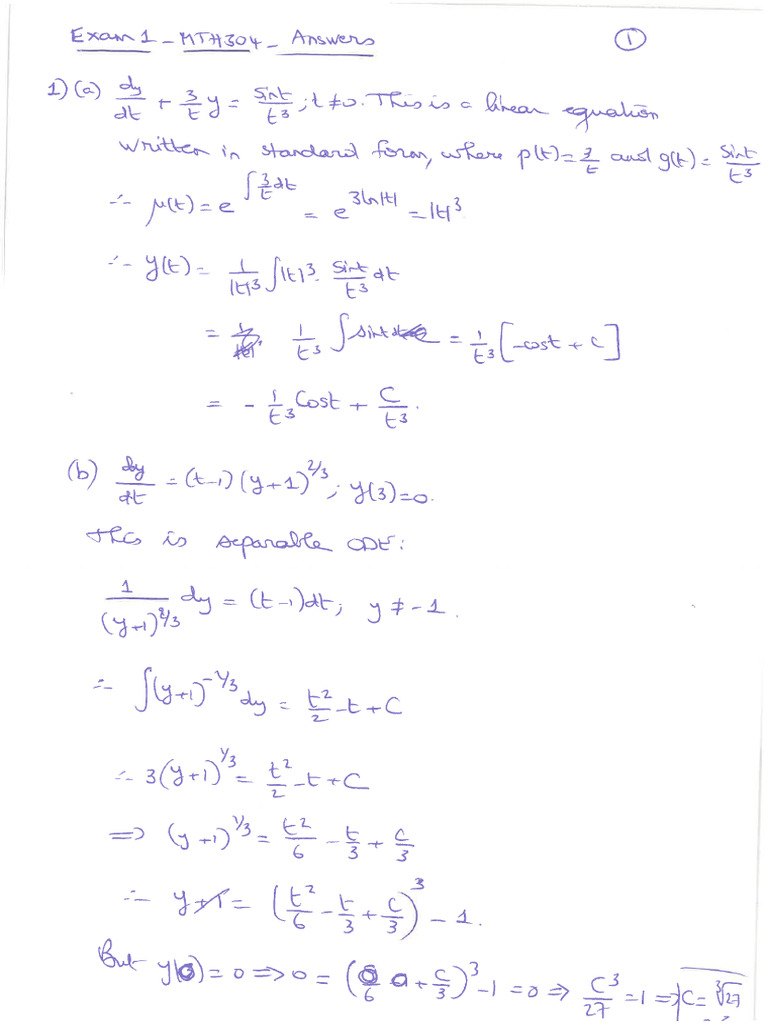 Exam 1 - MTH304 - Answers
①
1) (a) dy/dt + 3/t y = Sint/t³ ; t ≠ 0. This is a linear equation
written in standard form, where p(t) = 3/t and g(t) = Sint/t³
∴ μ(t) = e^(∫ 3/t dt) = e^(3ln|t|) = |t|³
∴ y(t) = 1/|t|³ ∫ |t|³. Sint/t³ dt
= 1/t³ ∫ sint dt = 1/t³ [-cost + C]
= - 1/t³ Cost + C/t³.
(b) dy/dt = (t-1) (y+1)^(2/3) ; y(3) = 0.
This is separable ODE:
1/(y+1)^(2/3) dy = (t-1)dt ; y ≠ -1.
∴ ∫(y+1)^(-2/3) dy = t²/2 - t + C
∴ 3(y+1)^(1/3) = t²/2 - t + C
⟹ (y+1)^(1/3) = t²/6 - t/3 + C/3
∴ y = (t²/6 - t/3 + C/3)³ - 1.
But y(0) = 0 ⟹ 0 = (0/6 - 0 + C/3)³ - 1 = 0 ⟹ C³/27 = 1 ⟹ C = ∛27